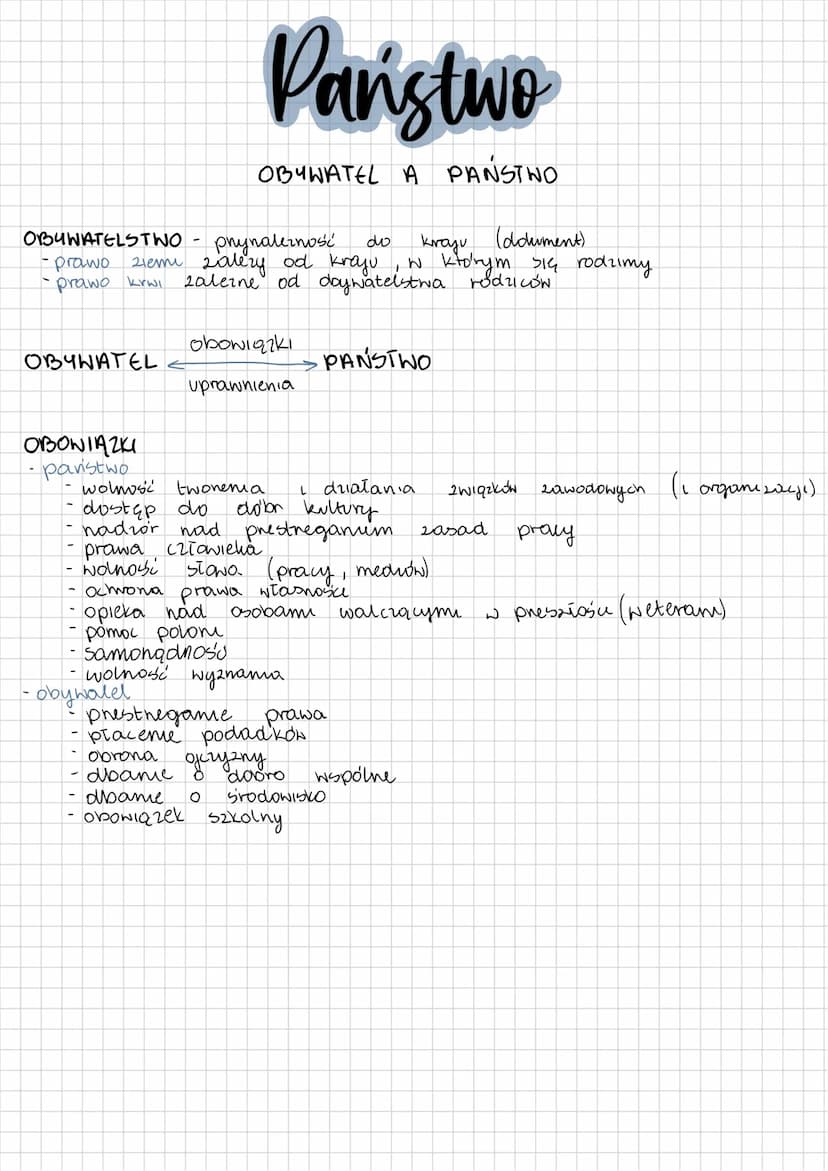 Państwo
OBYWATEL A PAŃSTWO
OBYWATELSTWO - przynależność do kraju (dokument)
- prawo ziemi zależy od kraju, w którym się rodzimy
- prawo krwi zależne od obywatelstwa rodziców
obowiązki
OBYWATEL PAŃSTWO
uprawnienia
OBOWIĄZKI
- państwo
- wolność tworzenia i działania związków zawodowych (i organizacji)
- dostęp do dóbr kultury
- nadzór nad przestrzeganiem zasad pracy
- prawa człowieka
- wolność słowa (pracy, mediów)
- ochrona prawa własności
- opieka nad osobami walczącymi w przeszłości (weterani)
- pomoc polonii
- samorządność
- wolność wyznania
- obywatel
- przestrzeganie prawa
- płacenie podatków
- obrona ojczyzny
- dbanie o dobro wspólne
- dbanie o środowisko
- obowiązek szkolny